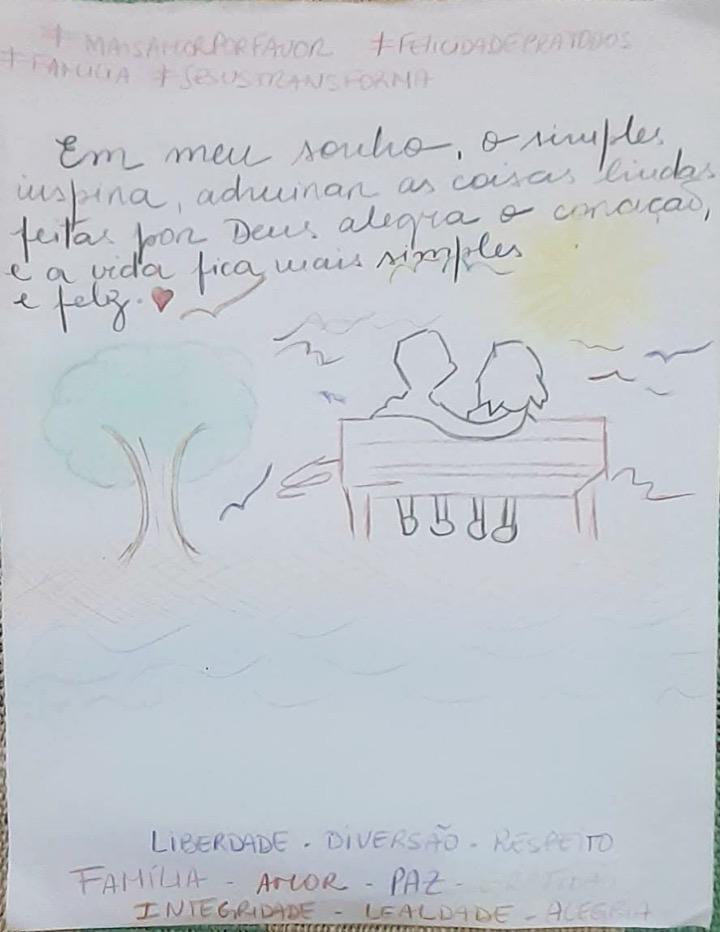 #MAISAMORPORFAVOR #FELICIDADEPRATODOS
#FAMILIA #JESUSTRANSFORMA
Em meu sonho, o simples
inspira, admirar as coisas lindas
feitas por Deus alegra o coração,
e a vida fica mais simples
e feliz.
LIBERDADE - DIVERSÃO - RESPEITO
FAMÍLIA - AMOR - PAZ -
INTEGRIDADE - LEALDADE - ALEGRIA